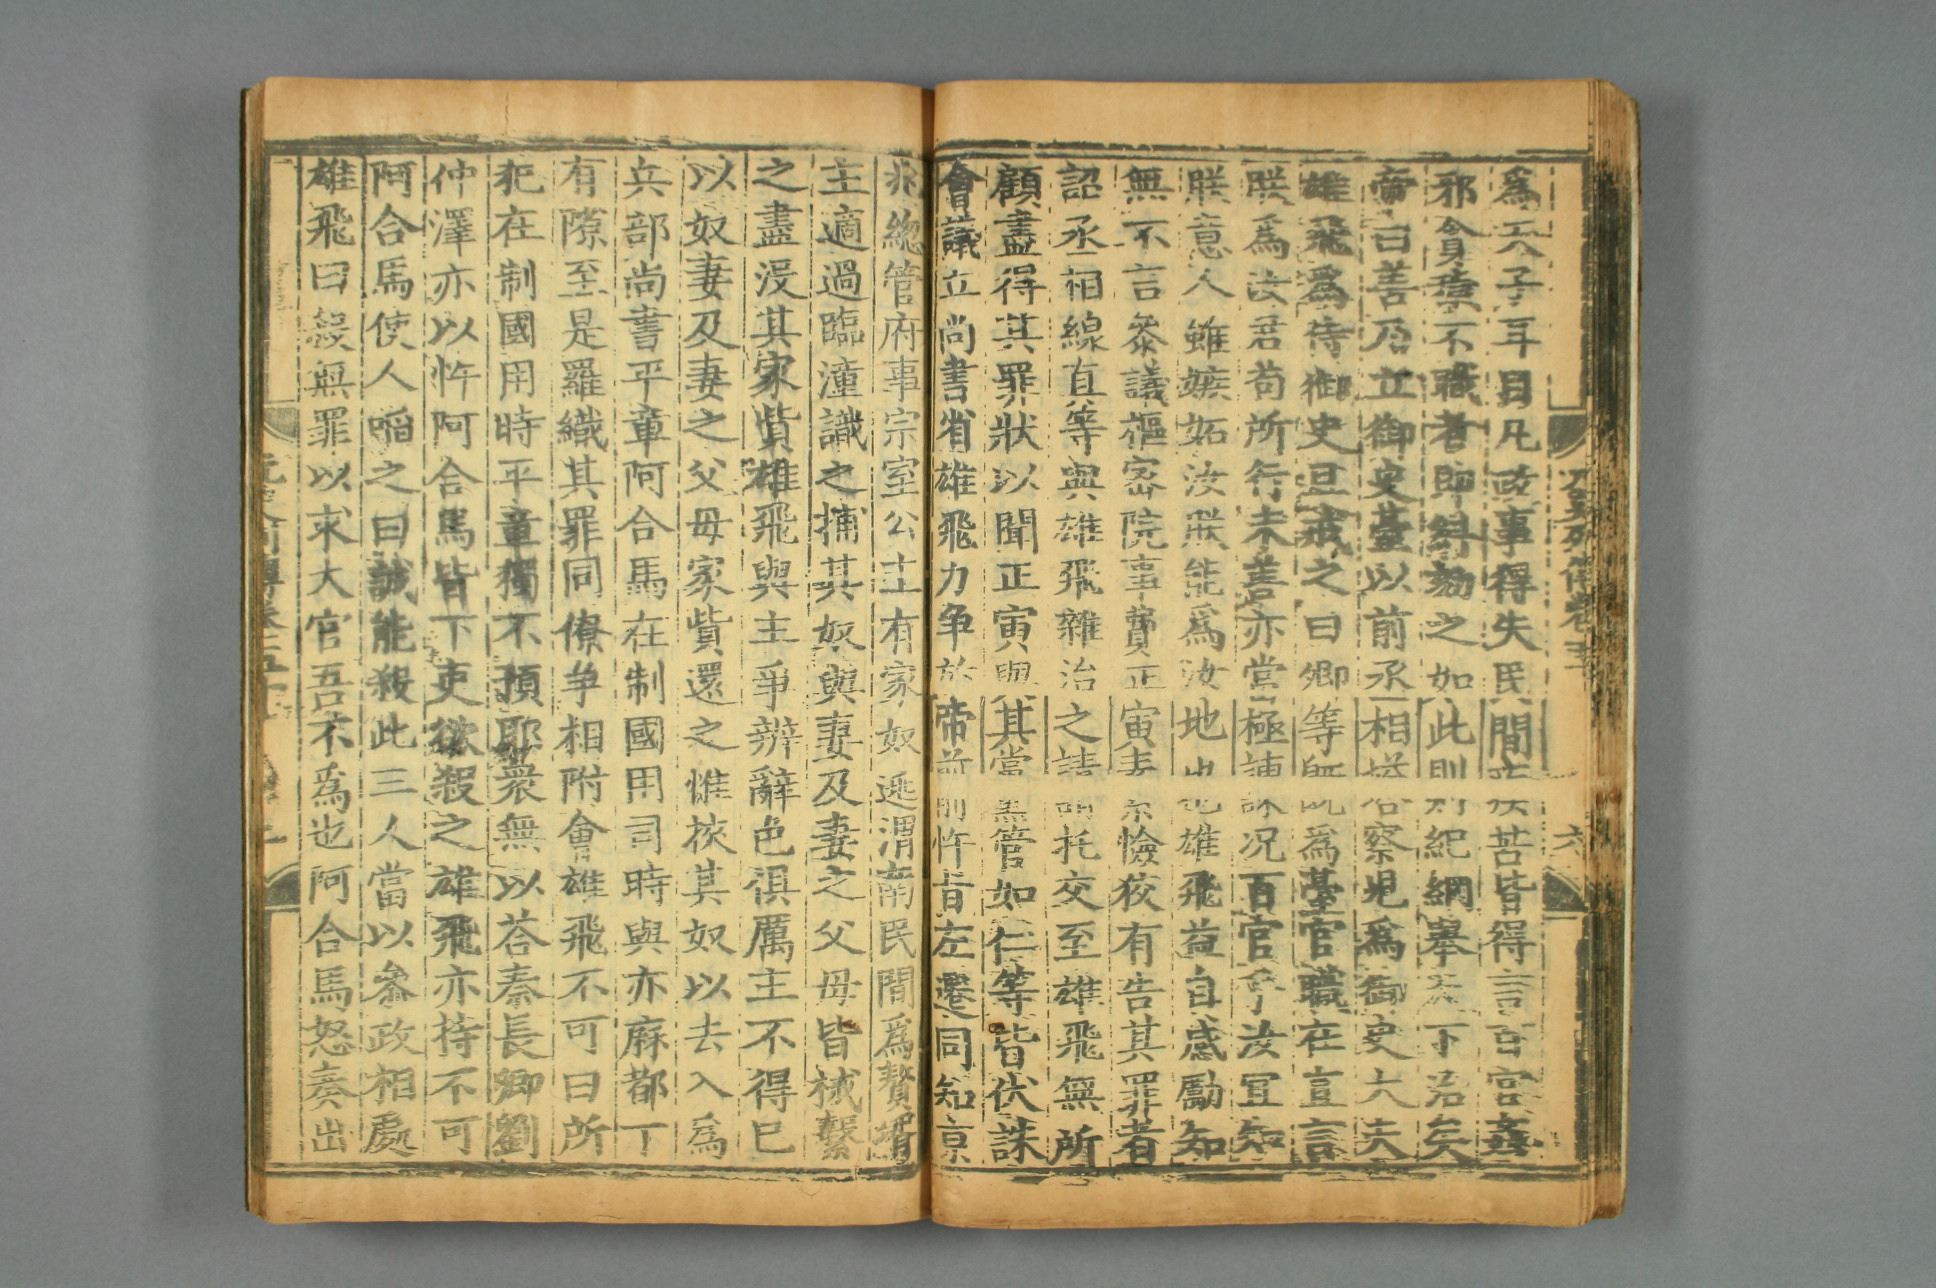 元史列傳卷五十 六
爲天子耳目凡政事得失民間疾苦皆得言百官姦
邪貪穢不職者即糾劾之如此則紀綱舉天下治矣
帝曰善乃立御史臺以前丞相塔察兒爲御史大夫
雄飛爲侍御史且戒之曰卿等既爲臺官職在直言
朕爲汝君苟所行未善亦當極諫况百官乎汝宜知
朕意人雖嫉妬汝朕能爲汝地也雄飛益自感勵知
無不言叅議樞密院事費正寅素憸狡有告其罪者
詔丞相線真等與雄飛雜治之請托交至雄飛無所
顧盡得其罪狀以聞正寅與其黨管如仁等皆伏誅
會議立尚書省雄飛力爭於帝前忤旨左遷同知京
兆總管府事宗室公主有家奴逃渭南民間爲贅壻
主適過臨潼識之捕其奴與妻及妻之父母皆械繫
之盡沒其家貲雄飛與主爭辨辭色俱厲主不得已
以奴妻及妻之父母家貲還之惟挾其奴以去入爲
兵部尚書平章阿合馬在制國用司時與亦麻都丁
有隙至是羅織其罪同僚爭相附會雄飛不可曰所
犯在制國用時平章獨不預耶衆無以荅秦長卿劉
仲澤亦以忤阿合馬皆下吏欲殺之雄飛亦持不可
阿合馬使人啗之曰誠能殺此三人當以叅政相處
雄飛曰殺無罪以求大官吾不爲也阿合馬怒奏出